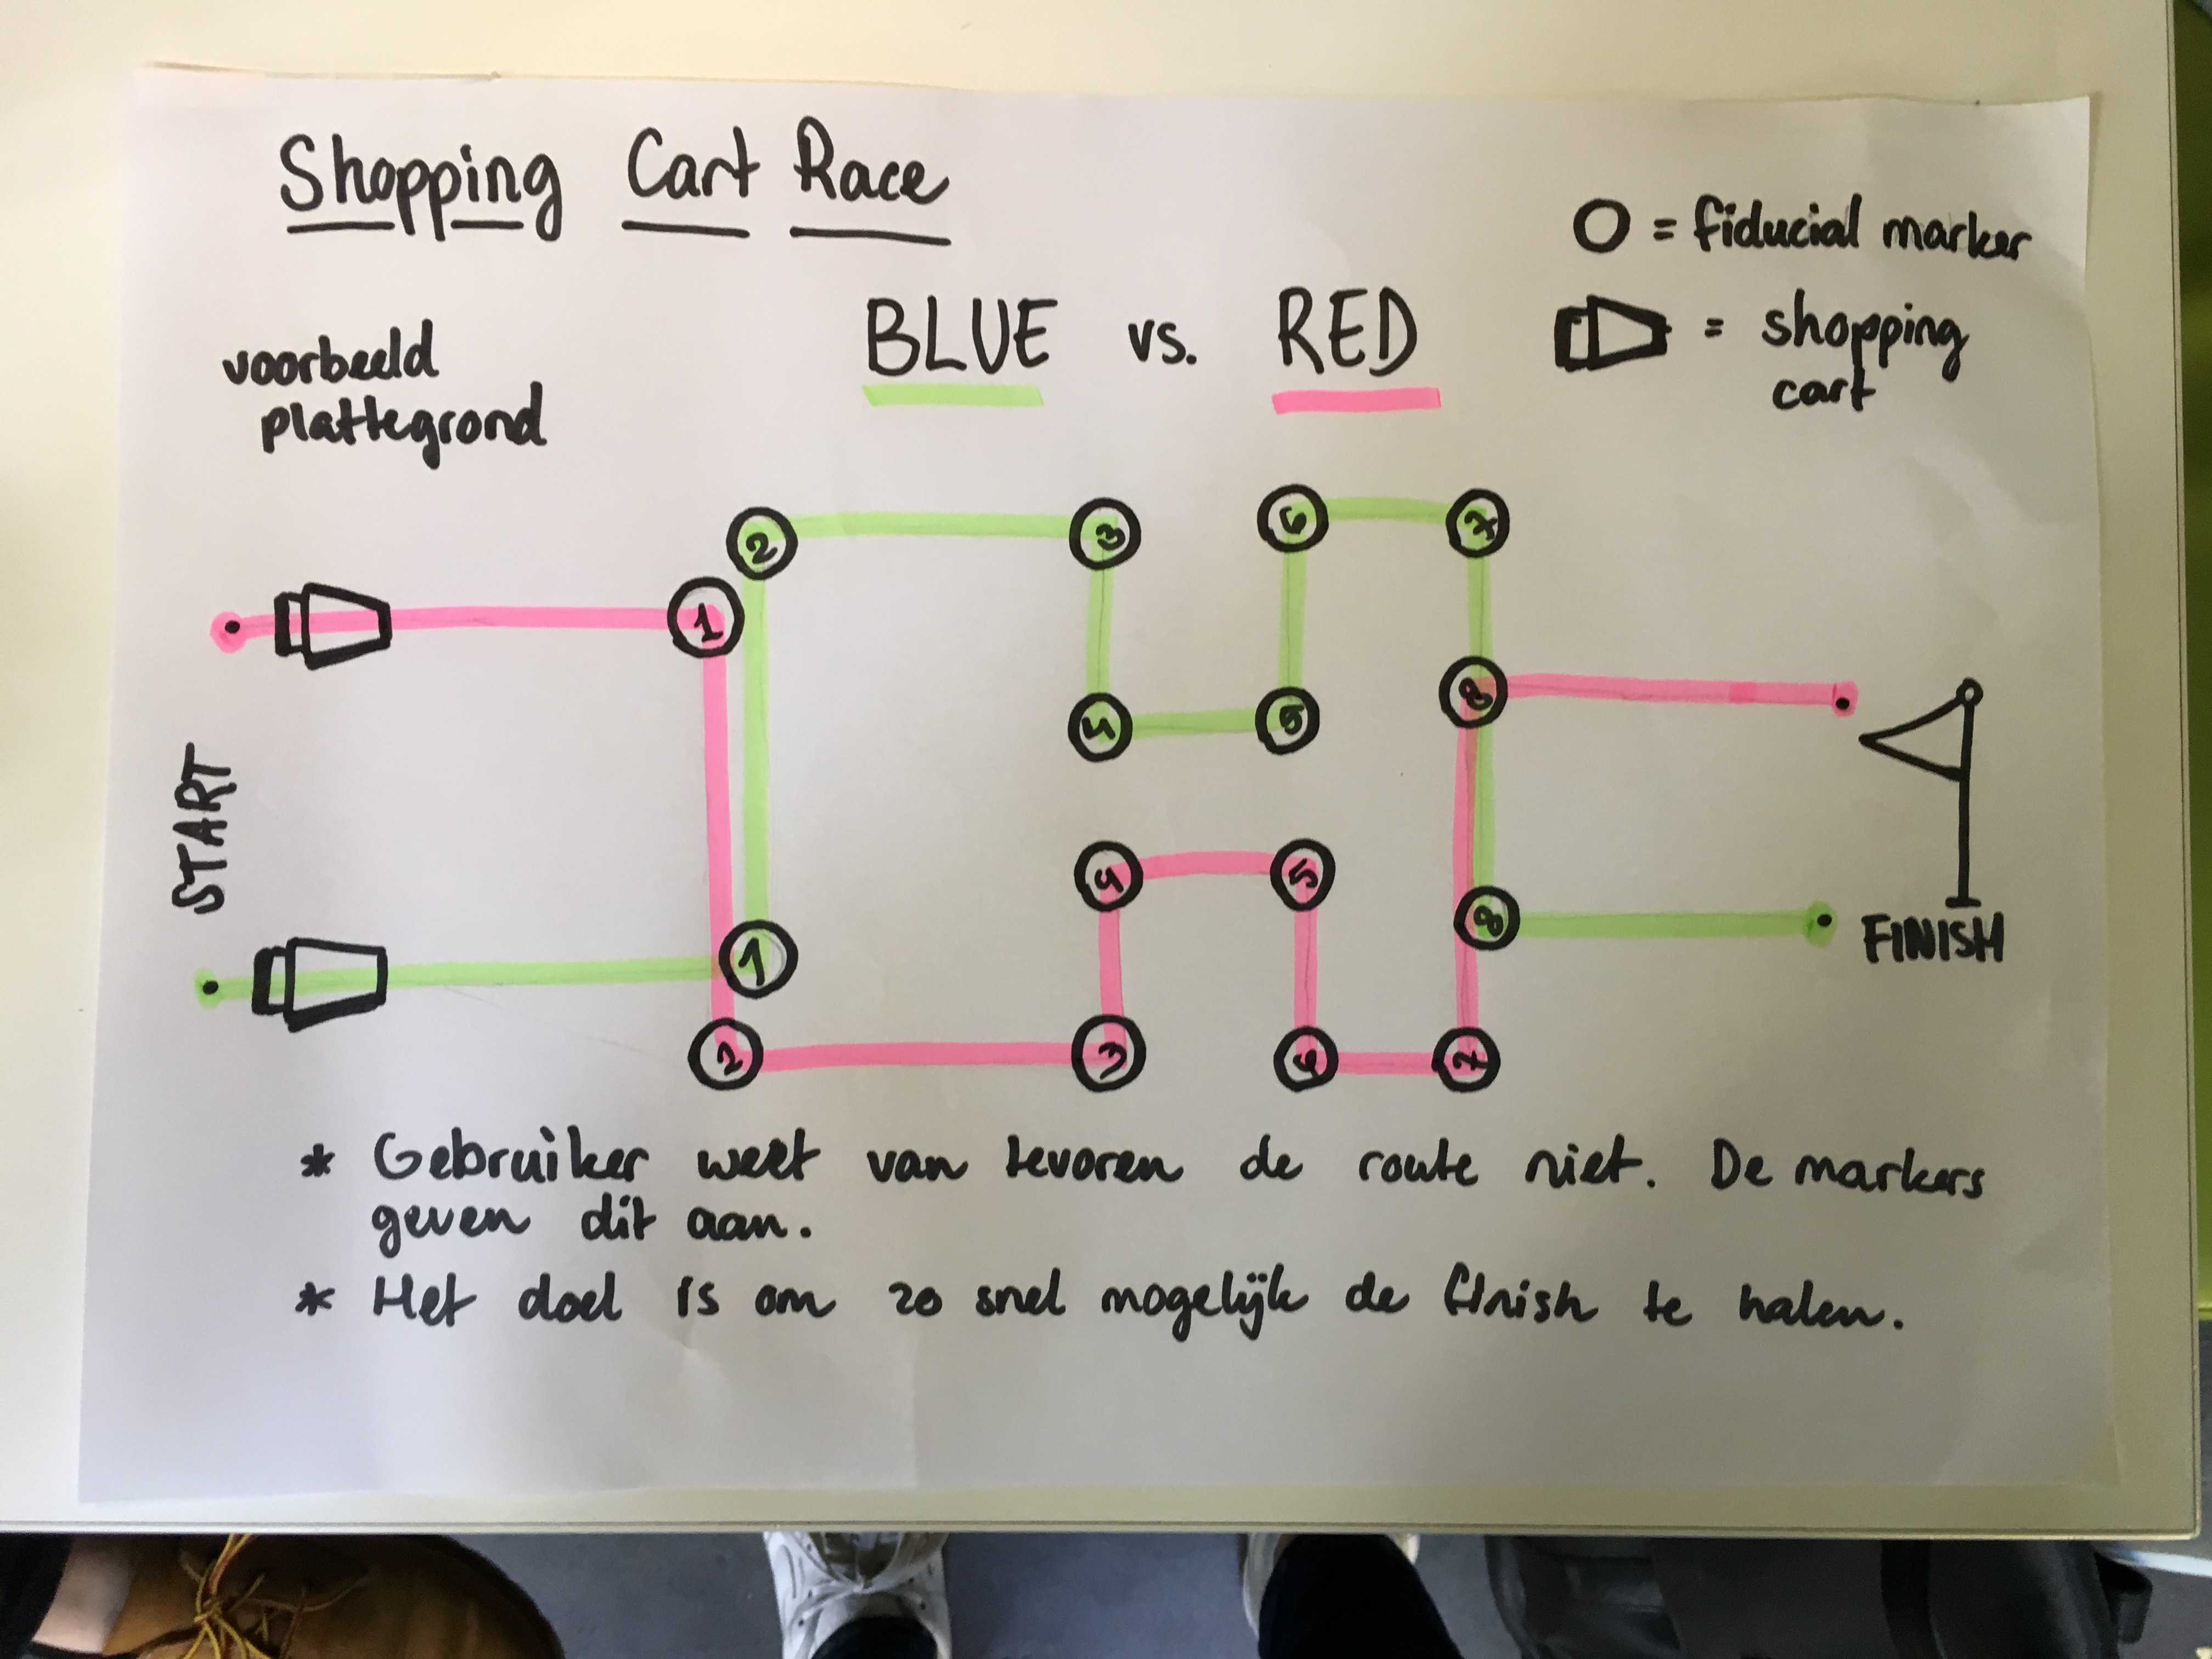 Shopping Cart Race
O = fiducial marker
= shopping
cart
BLUE vs. RED
voorbeeld
plattegrond
START
1
2
3
4
5
6
7
8
1
2
3
4
5
6
7
8
FINISH
* Gebruiker weet van tevoren de route niet. De markers
geven dit aan.
* Het doel is om zo snel mogelijk de finish te halen.